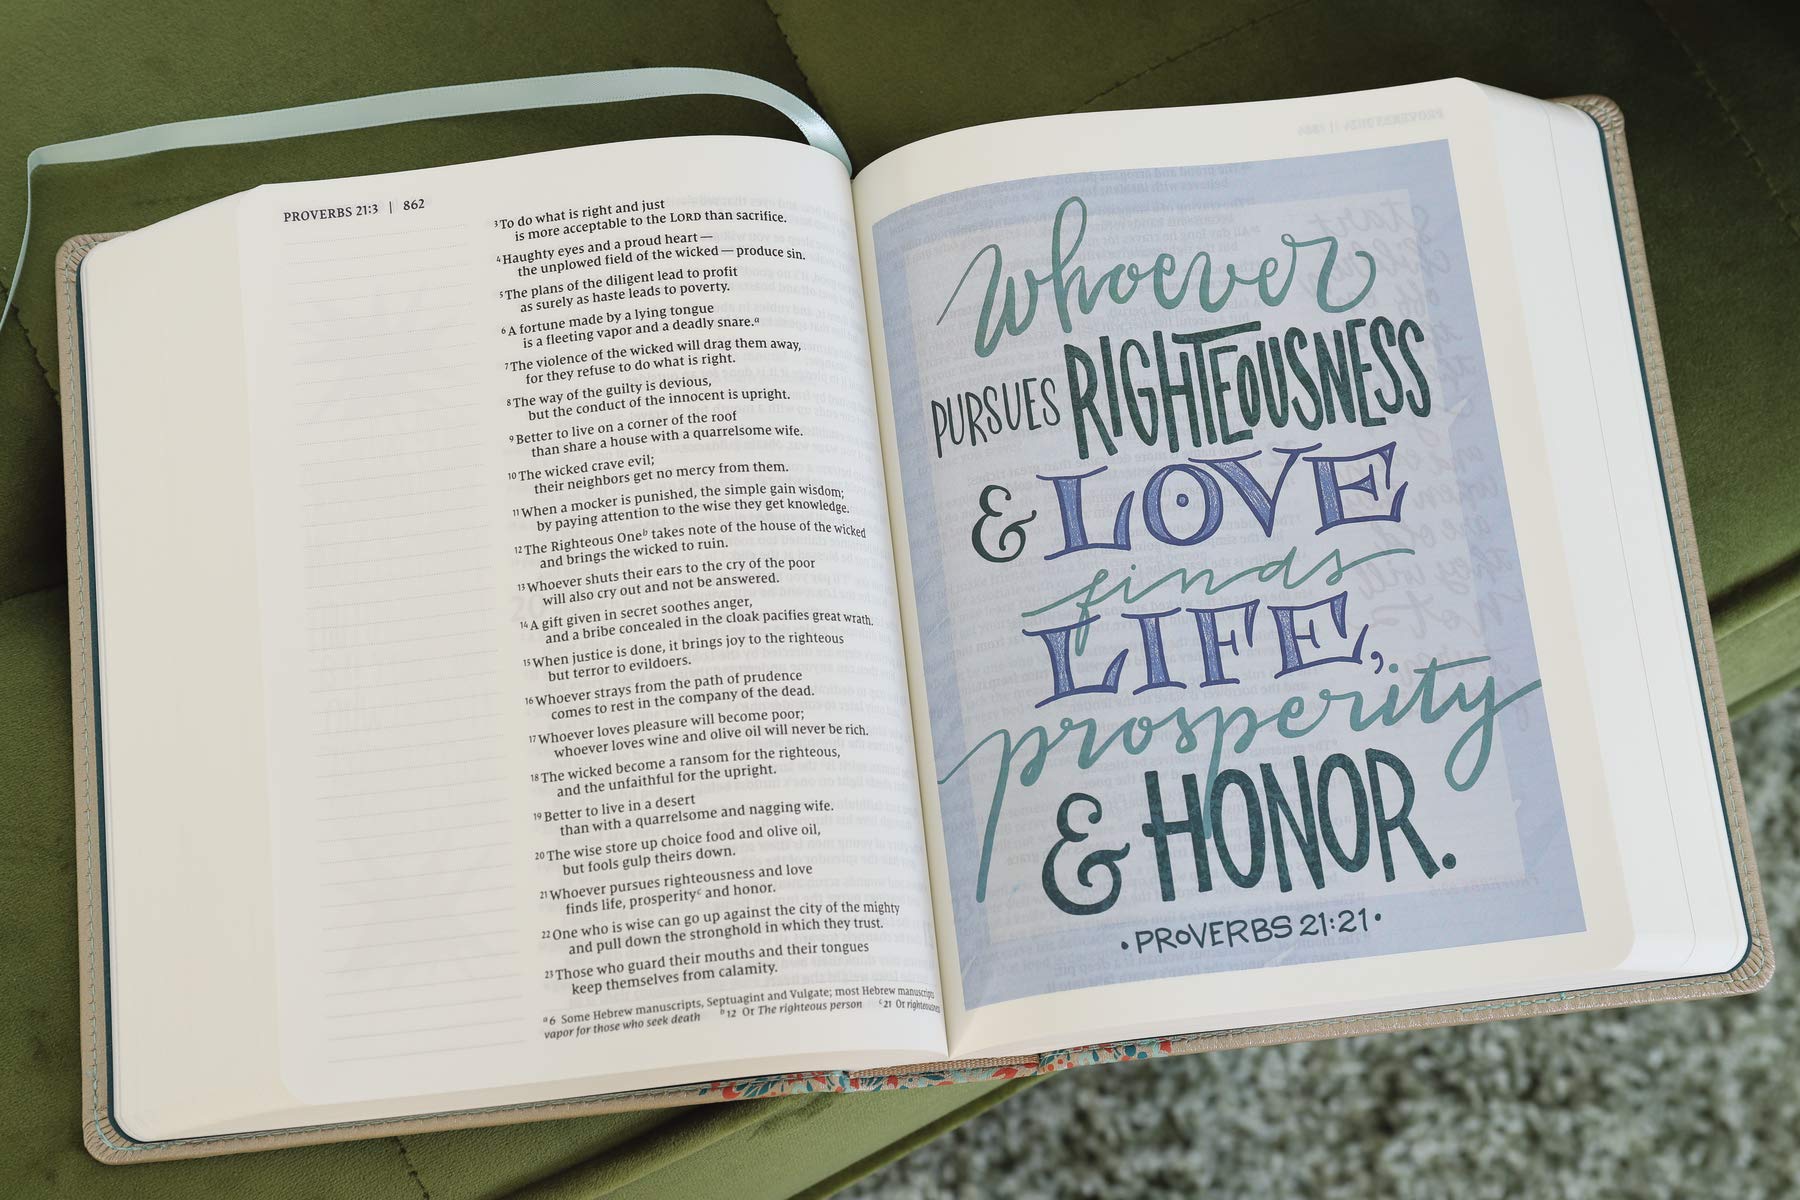 PROVERBS 21:3 | 862
3 To do what is right and just
is more acceptable to the LORD than sacrifice.
4 Haughty eyes and a proud heart —
the unplowed field of the wicked — produce sin.
5 The plans of the diligent lead to profit
as surely as haste leads to poverty.
6 A fortune made by a lying tongue
is a fleeting vapor and a deadly snare.a
7 The violence of the wicked will drag them away,
for they refuse to do what is right.
8 The way of the guilty is devious,
but the conduct of the innocent is upright.
9 Better to live on a corner of the roof
than share a house with a quarrelsome wife.
10 The wicked crave evil;
their neighbors get no mercy from them.
11 When a mocker is punished, the simple gain wisdom;
by paying attention to the wise they get knowledge.
12 The Righteous Oneb takes note of the house of the wicked
and brings the wicked to ruin.
13 Whoever shuts their ears to the cry of the poor
will also cry out and not be answered.
14 A gift given in secret soothes anger,
and a bribe concealed in the cloak pacifies great wrath.
15 When justice is done, it brings joy to the righteous
but terror to evildoers.
16 Whoever strays from the path of prudence
comes to rest in the company of the dead.
17 Whoever loves pleasure will become poor;
whoever loves wine and olive oil will never be rich.
18 The wicked become a ransom for the righteous,
and the unfaithful for the upright.
19 Better to live in a desert
than with a quarrelsome and nagging wife.
20 The wise store up choice food and olive oil,
but fools gulp theirs down.
21 Whoever pursues righteousness and love
finds life, prosperityc and honor.
22 One who is wise can go up against the city of the mighty
and pull down the stronghold in which they trust.
23 Those who guard their mouths and their tongues
keep themselves from calamity.
a 6 Some Hebrew manuscripts, Septuagint and Vulgate; most Hebrew manuscripts
vapor for those who seek death b 12 Or The righteous person c 21 Or righteousness
whoever
PURSUES RIGHTEOUSNESS
& LOVE
finds
LIFE,
prosperity
& HONOR.
• PROVERBS 21:21 •